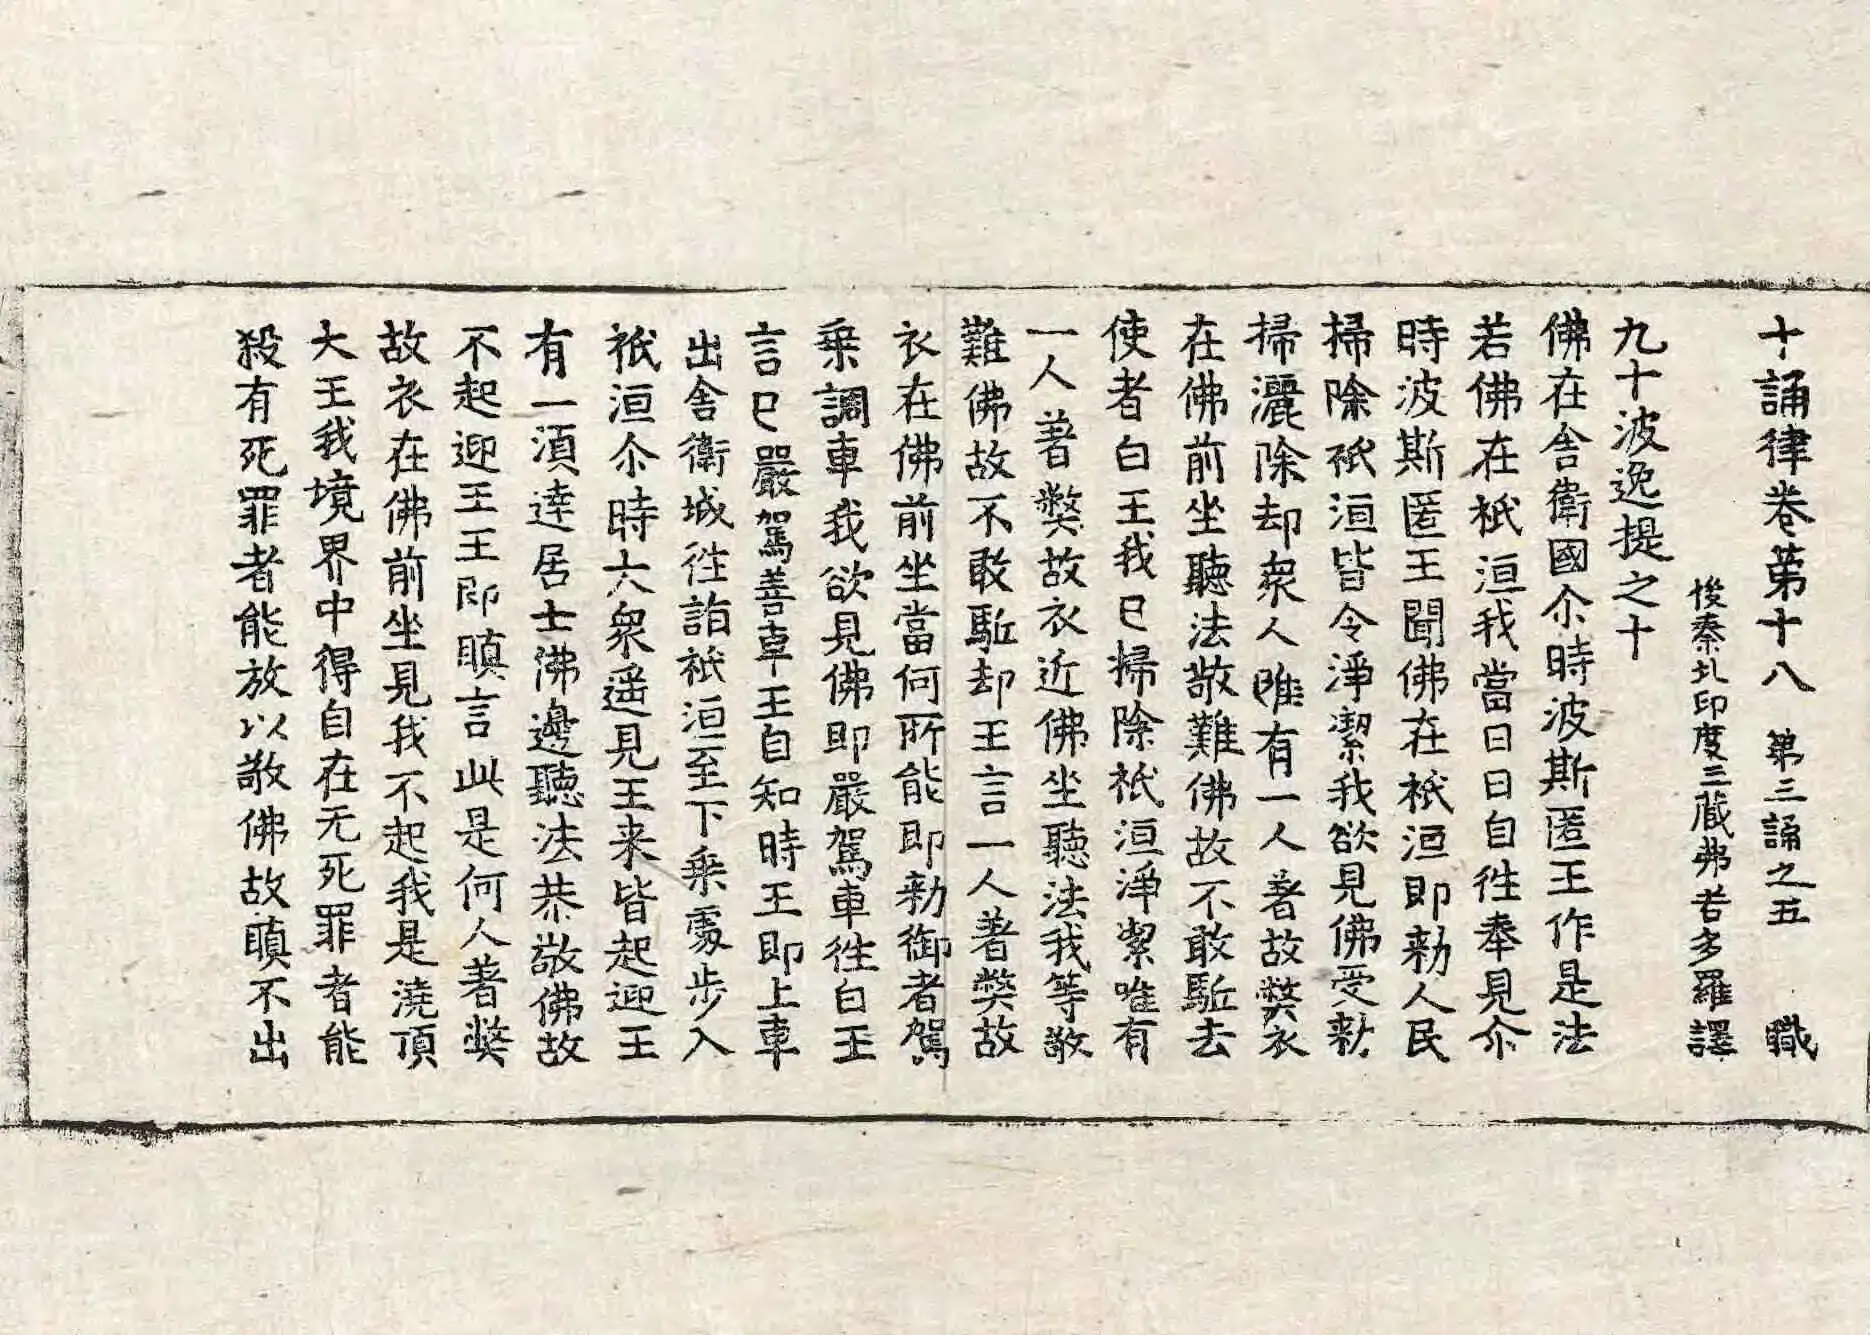 十誦律卷第十八 第三誦之五 職
後秦北印度三藏弗若多羅譯
九十波逸提之十
佛在舍衛國尒時波斯匿王作是法
若佛在祇洹我當日日自徃奉見尒
時波斯匿王聞佛在祇洹即勑人民
掃除祇洹皆令淨潔我欲見佛受勑
掃灑除却衆人唯有一人著故弊衣
在佛前坐聽法敬難佛故不敢駈去
使者白王我已掃除祇洹淨潔唯有
一人著弊故衣近佛坐聽法我等敬
難佛故不敢駈却王言一人著弊故
衣在佛前坐當何所能即勑御者駕
乗調車我欲見佛即嚴駕車徃白王
言已嚴駕善車王自知時王即上車
出舍衛城徃詣祇洹至下乗處步入
祇洹尒時大衆遥見王来皆起迎王
有一湏達居士佛邊聽法恭敬佛故
不起迎王王即瞋言此是何人著弊
故衣在佛前坐見我不起我是澆頂
大王我境界中得自在无死罪者能
殺有死罪者能放以敬佛故瞋不出